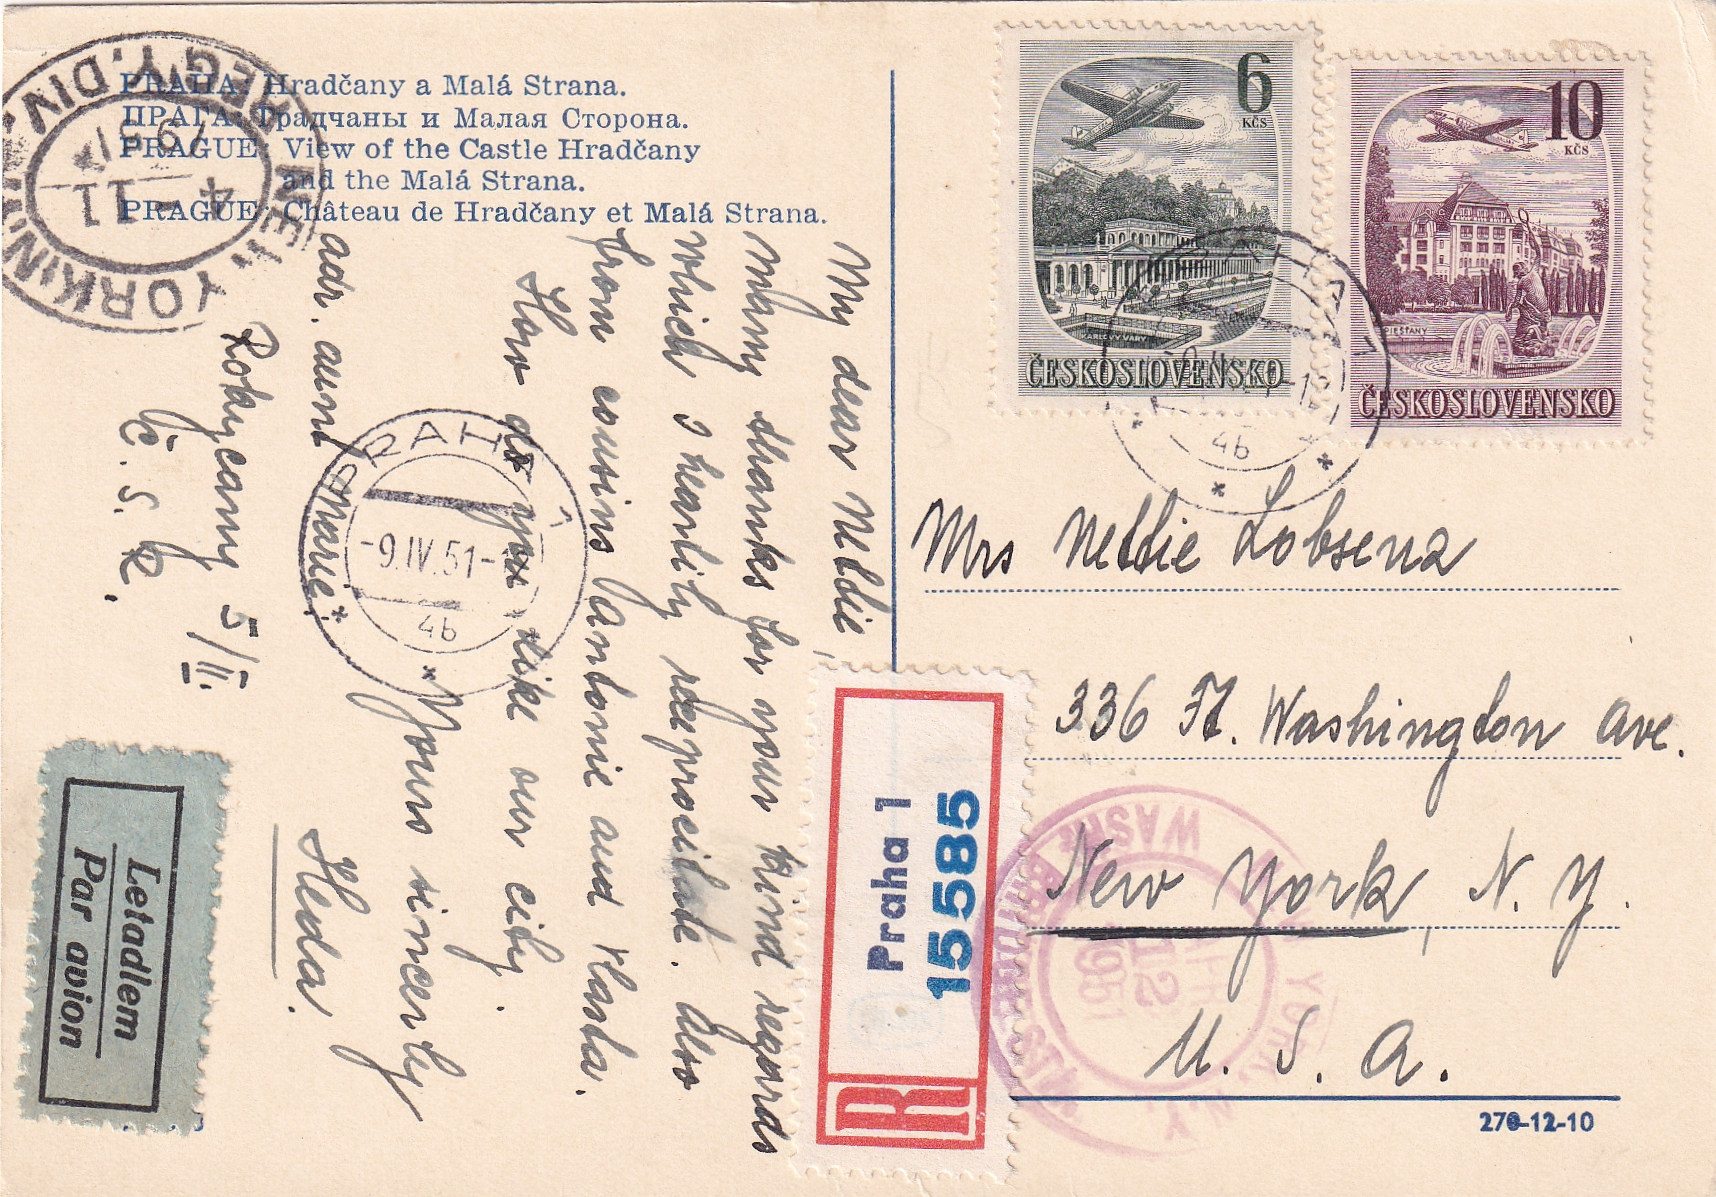 PRAHA: Hradčany a Malá Strana.
ПРАГА: Градчаны и Малая Сторона.
PRAGUE: View of the Castle Hradčany
and the Malá Strana.
PRAGUE: Château de Hradčany et Malá Strana.
NEW YORK
REG'Y. DIV.
4 11
1951
My dear Neddie
many thanks for your kind regards
which I heartily reeprocitate. Also
from cousins Jantonie and Vlasta.
How do you like our city.
Yours sincerly
Heda.
adr. aunt Marie:
Rokycany 5/II.
Č. S. R.
PRAHA 1
-9.IV.51-
4b
Letadlem
Par avion
6
KČS
KARLOVY VARY
ČESKOSLOVENSKO
10
KČS
PIEŠŤANY
ČESKOSLOVENSKO
PRAHA 1
4b
Mrs Nettie Lobsenz
336 Ft. Washington Ave.
New York, N. Y.
U. S. A.
R
Praha 1
15585
WASH. BRIDGE
NEW YORK, N.Y.
APR
12
1951
270-12-10